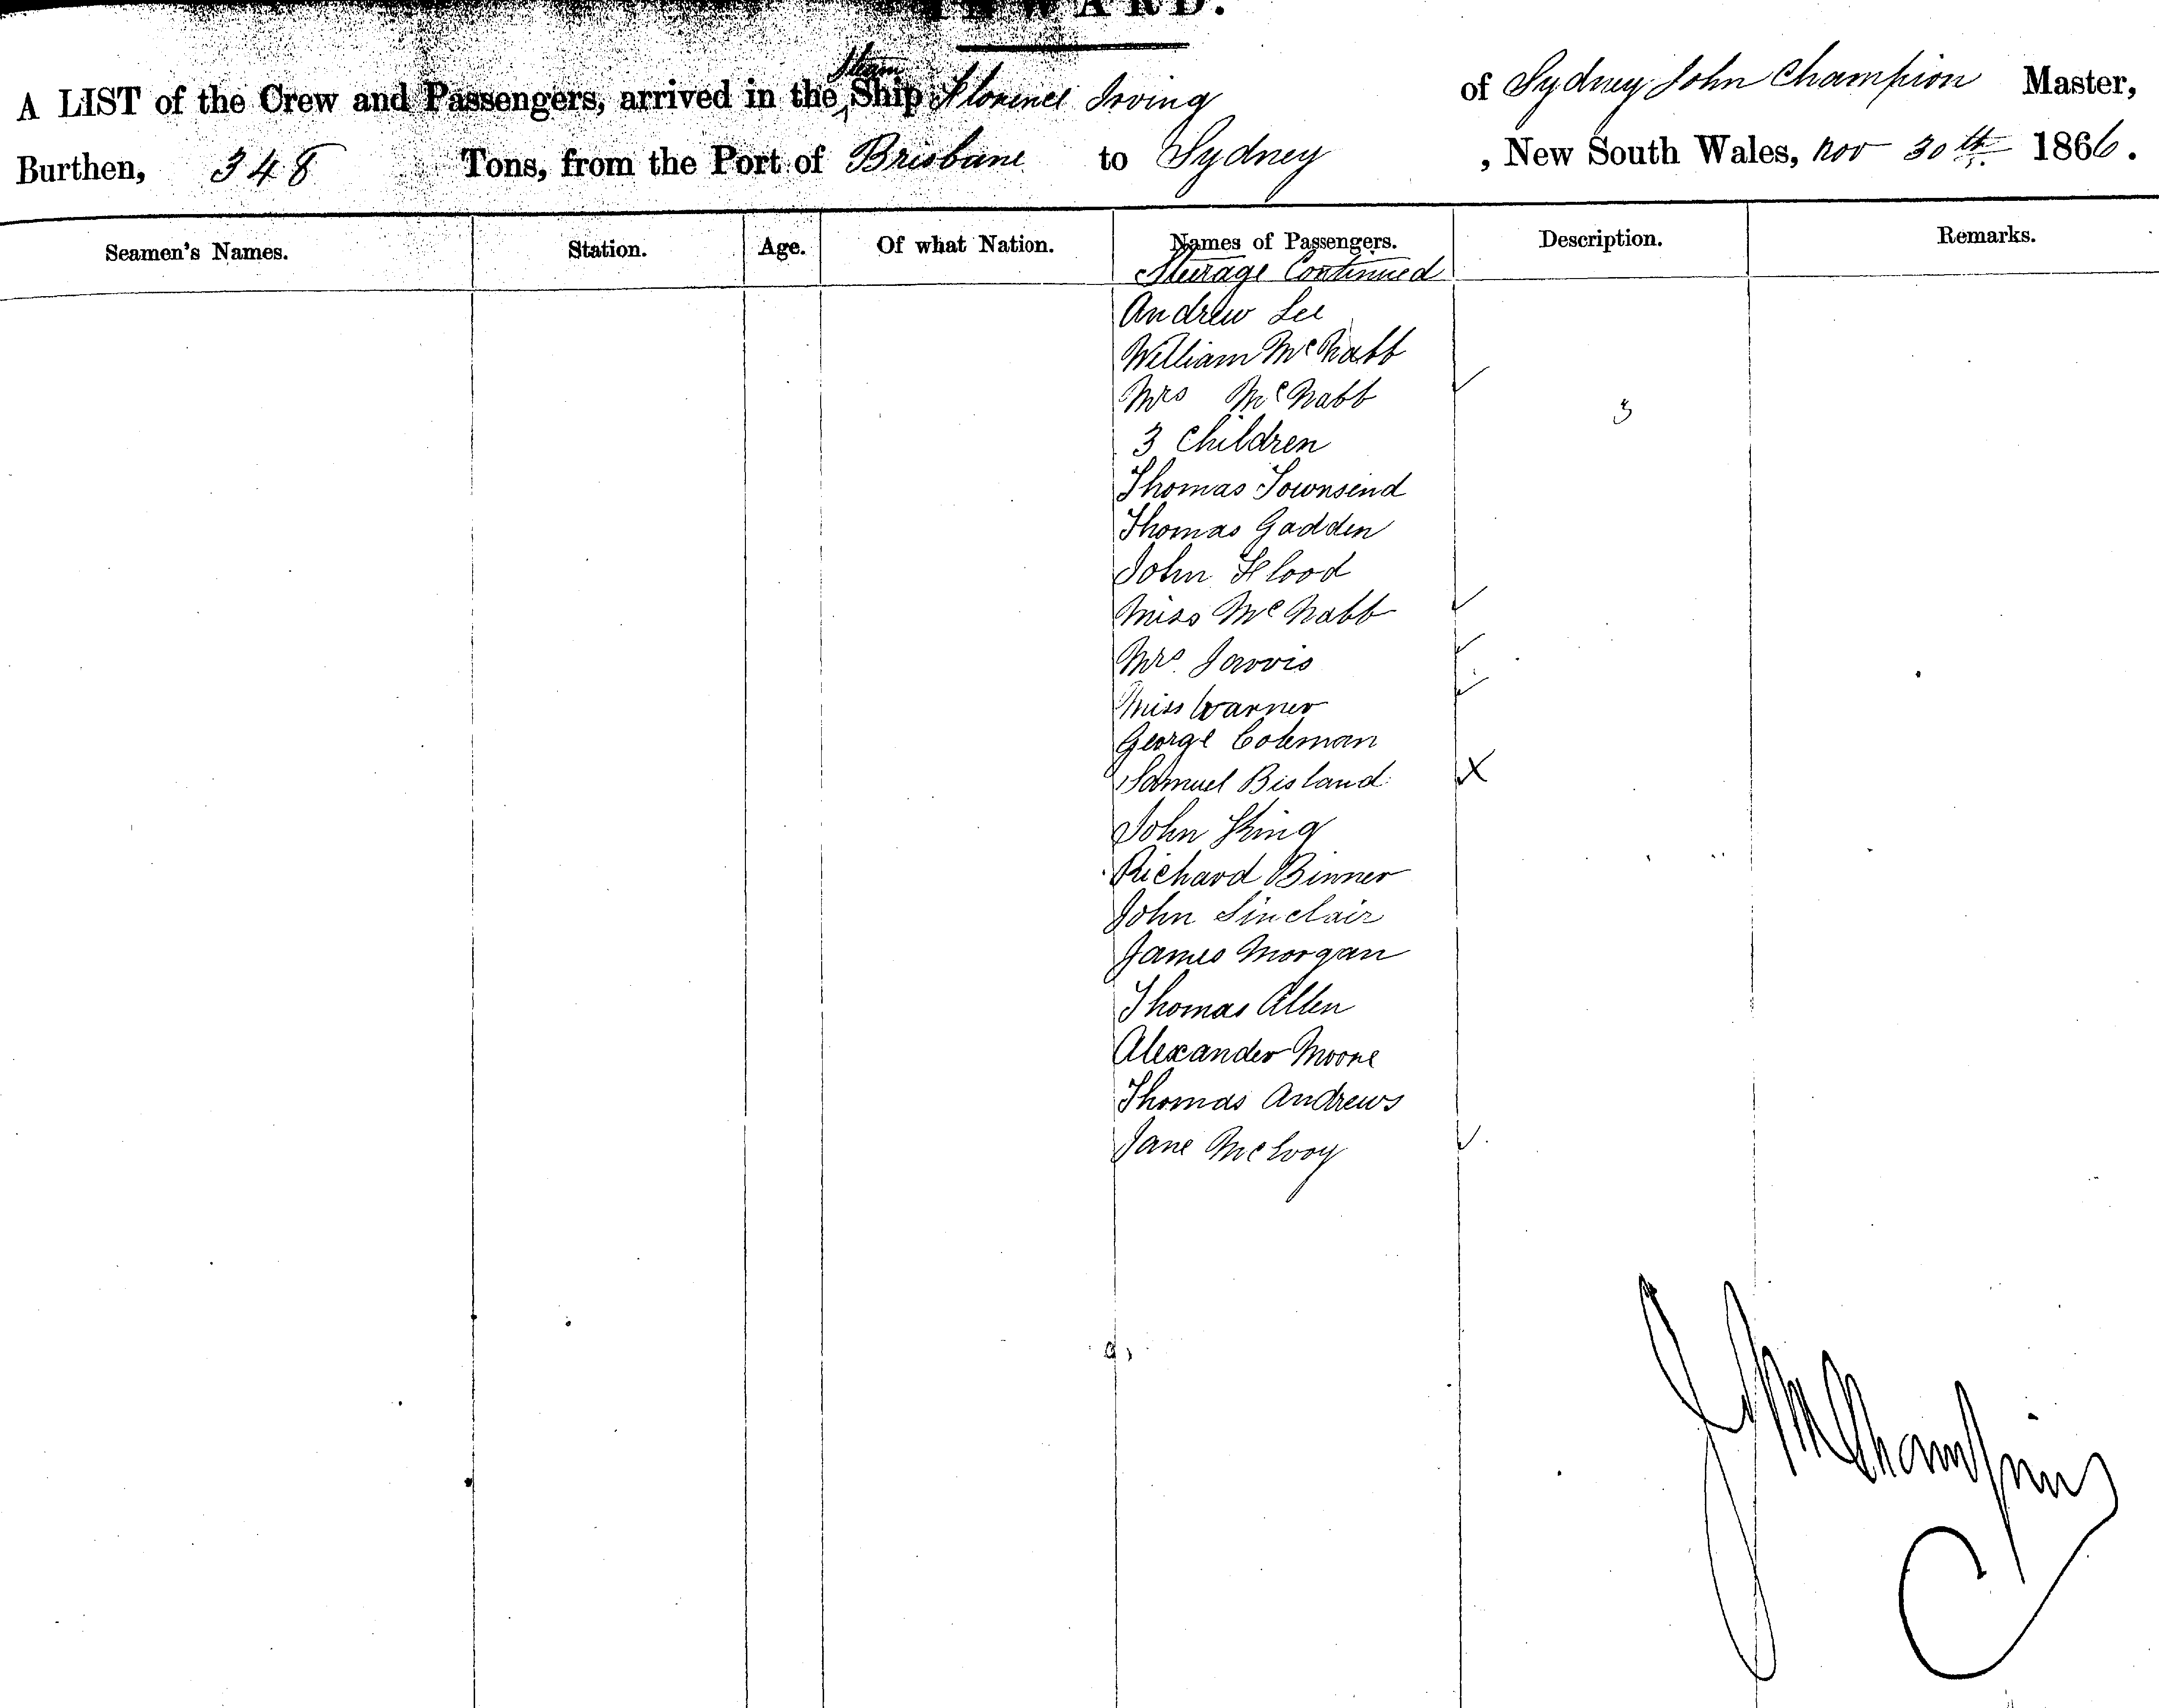 INWARD.
A LIST of the Crew and Passengers, arrived in the Steam Ship Florence Irving of Sydney John Champion Master,
Burthen, 348 Tons, from the Port of Brisbane to Sydney, New South Wales, Nov 30th 1866.
Seamen's Names. Station. Age. Of what Nation. Names of Passengers. Description. Remarks.
Steerage Continued
Andrew Lee
William McNabb
Mrs McNabb ✓
3
3 Children
Thomas Townsend
Thomas Gadden
John Flood
Miss McNabb ✓
Mrs. Jarvis ✓
Miss Warner ✓
George Coleman
Samuel Bisland X
John King
Richard Binner
John Sinclair
James Morgan
Thomas Allen
Alexander Moore
Thomas Andrews
Jane McEvoy ✓
J M Champion